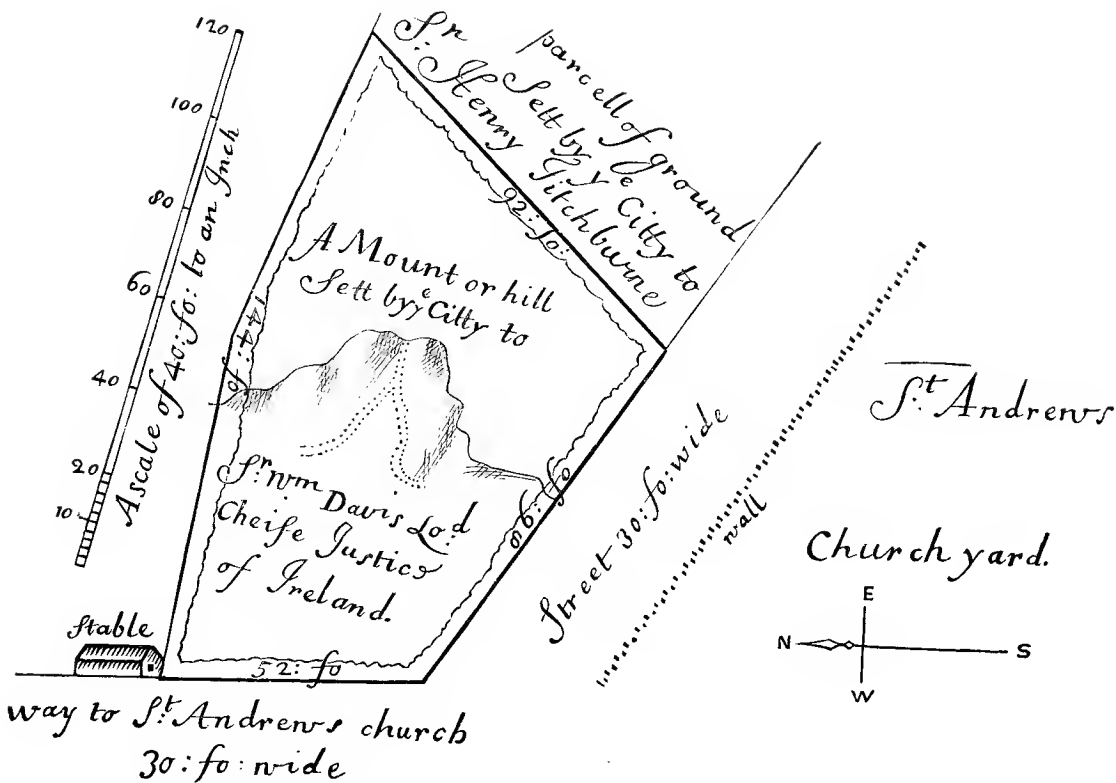 120
100
80
60
40
20
10
A scale of 40: fo: to an Inch
parcell of ground
Sett by yᵉ Citty to
Sr: Henry Titchburne
92: fo:
A Mount or hill
Sett by yᵉ Citty to
144: fo
Sr: Wm Davis Lo:d
Cheife Justice
of Ireland.
86: fo
52: fo
Stable
way to St: Andrews church
30: fo: wide
Street 30: fo: wide
wall
St: Andrews
Church yard.
E
N
S
W